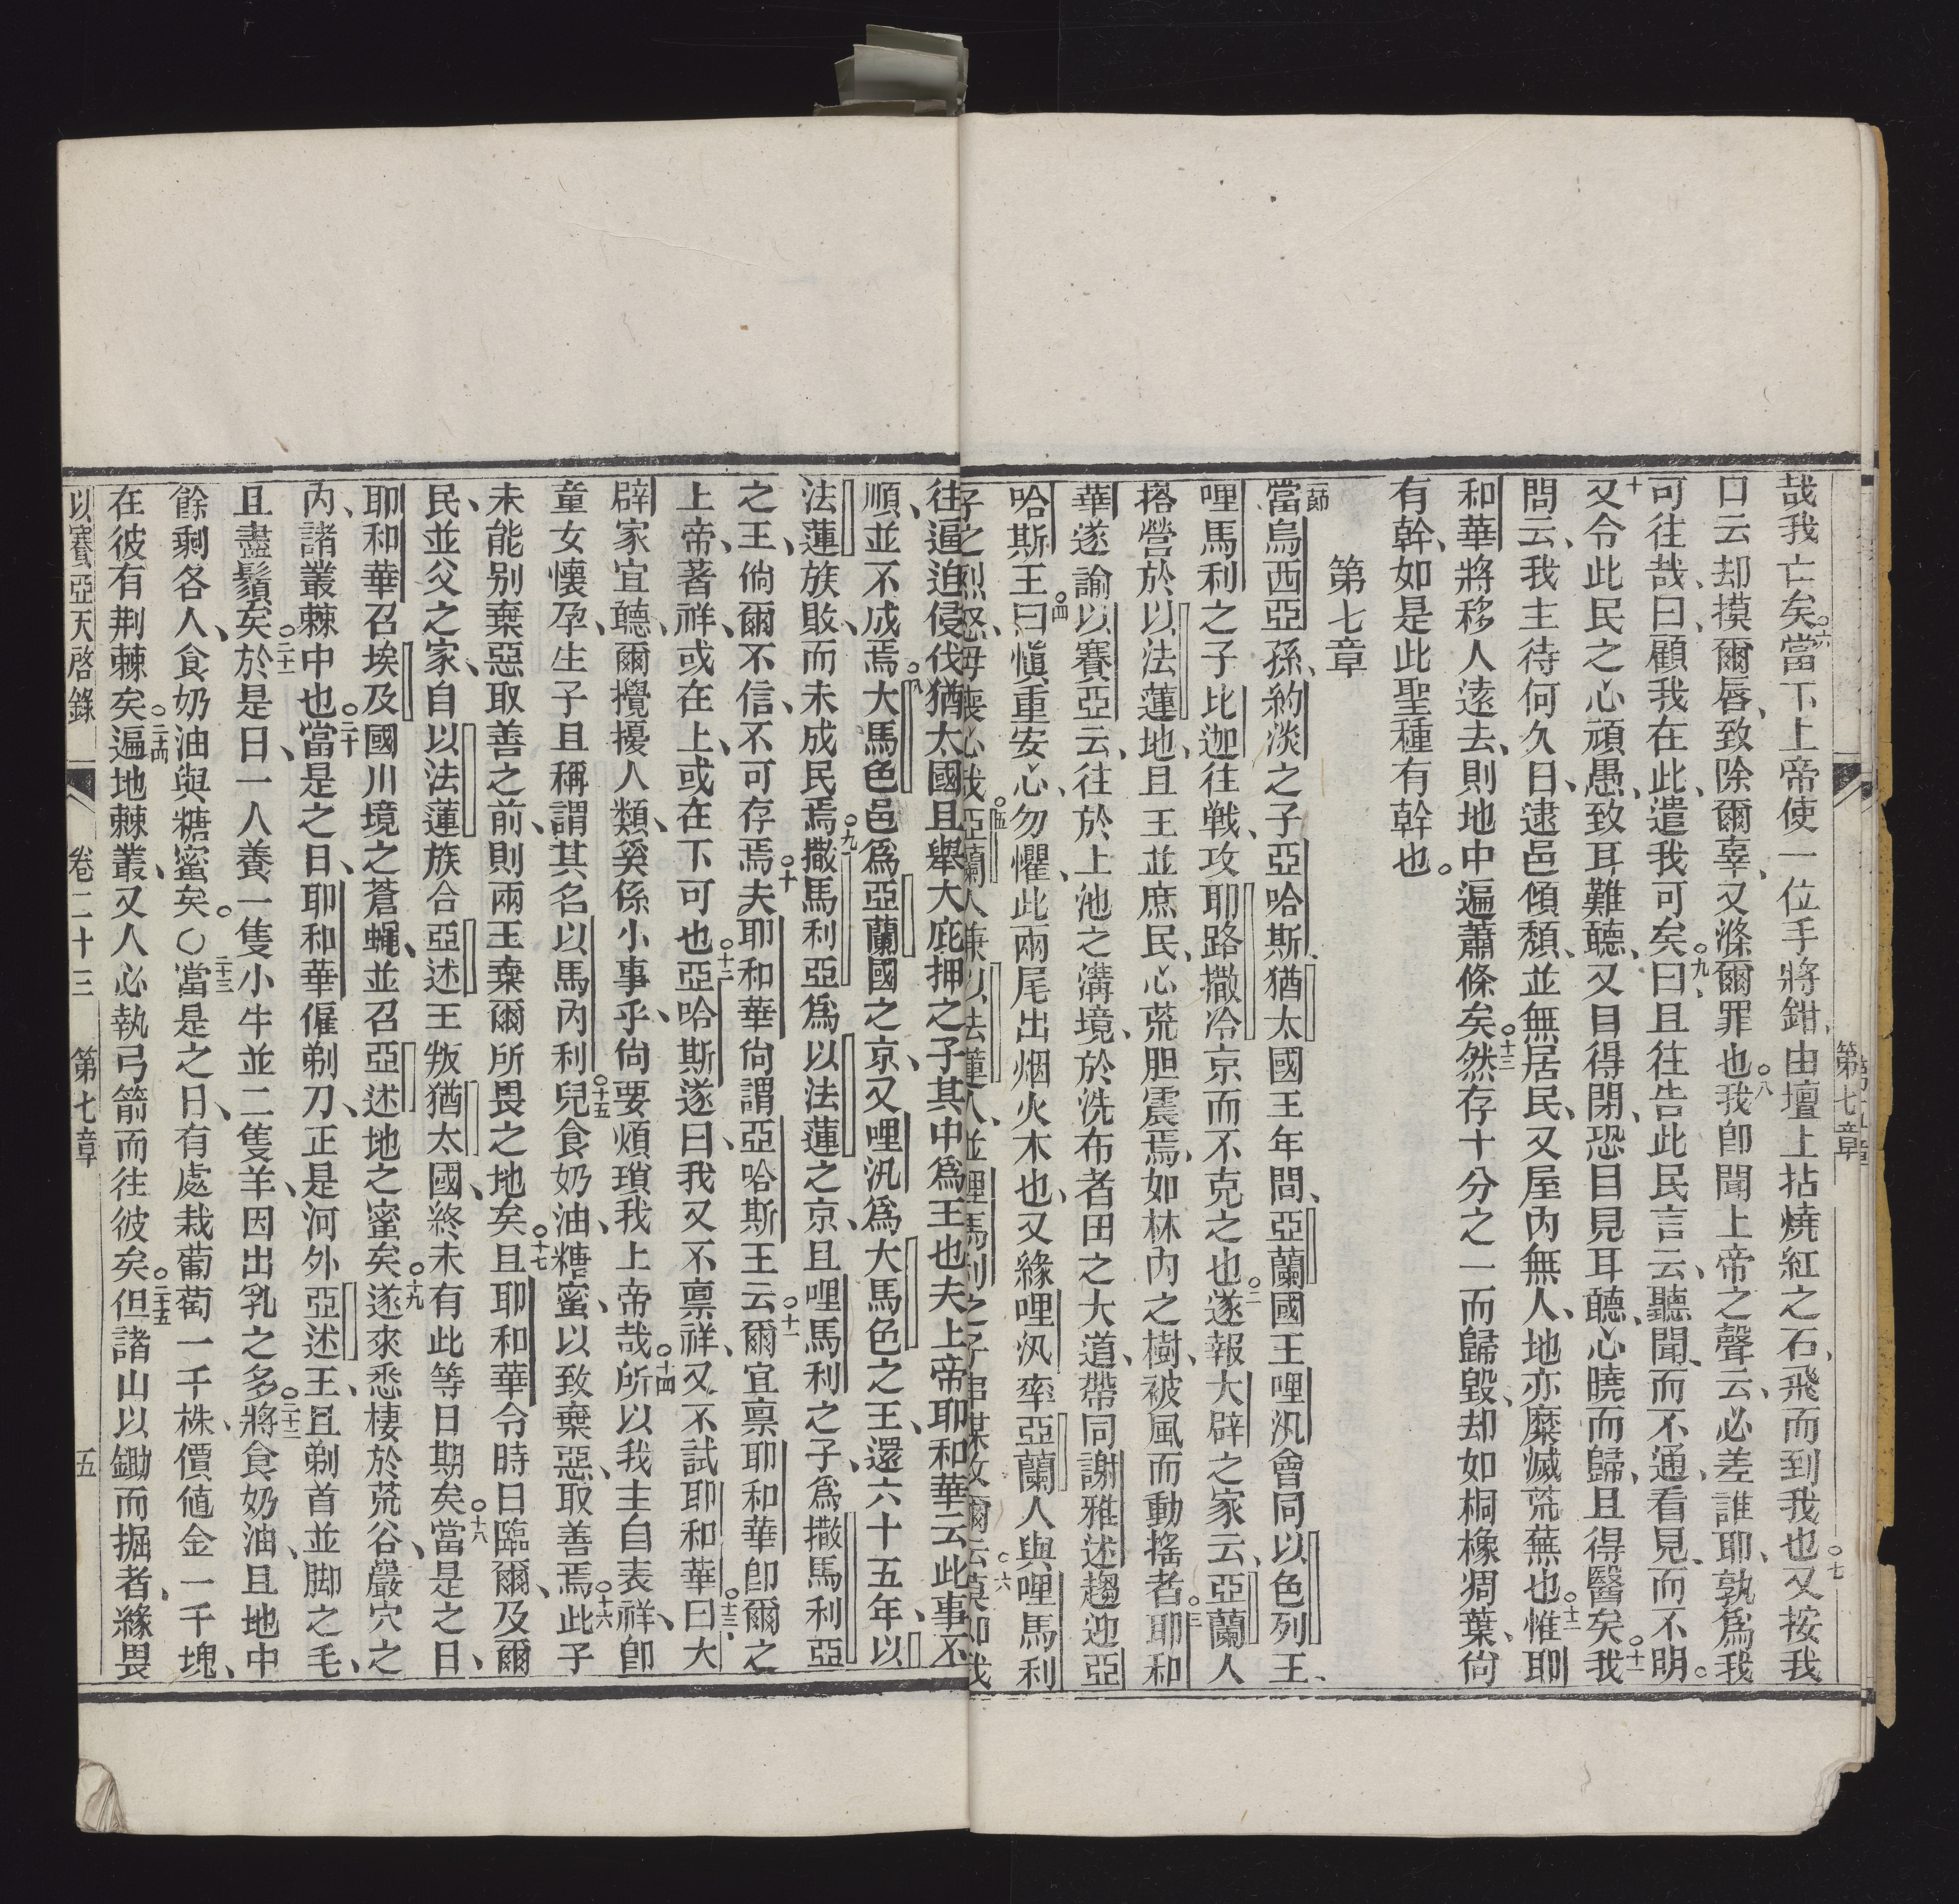 第七章
哉我亡矣○六當下上帝使一位手將鉗、由壇上拈燒紅之石、飛而到我也○七又按我
口云却摸爾唇、致除爾辜、又滌爾罪也○八我卽聞上帝之聲云、必差誰耶、孰爲我
可往哉、曰、顧我在此、遣我可矣○九、曰且往告此民言云、聽聞、而不通、看見、而不明○
十又令此民之心頑愚、致耳難聽、又目得閉、恐目見耳聽、心曉而歸、且得醫矣○十一我
問云、我主待何久日、逮邑傾頽、並無居民、又屋內無人、地亦糜滅荒蕪也○十二惟耶
和華將移人遠去、則地中遍蕭條矣○十三然存十分之一而歸毀、却如桐橡凋葉、尙
有幹、如是此聖種有幹也。
第七章
一節當烏西亞孫、約淡之子亞哈斯、猶太國王年間、亞蘭國王哩汎會同以色列王、
哩馬利之子比迦往戰、攻耶路撒冷京而不克之也○二遂報大辟之家云、亞蘭人
搭營於以法蓮地、且王並庶民、心荒胆震焉、如林內之樹、被風而動搖者○三耶和
華遂諭以賽亞云、往於上池之溝境、於洗布者田之大道、帶同謝雅述趨迎亞
哈斯王○四曰愼重安心、勿懼、此兩尾出烟火木也、又緣哩汎率亞蘭人與哩馬利
子之烈怒、毋喪心哉○五亞蘭人兼以法蓮人、並哩馬利之子串謀攻爾云○六莫如我
往逼迫侵伐猶太國且舉大庇押之子其中爲王也夫上帝耶和華云此事不
順、並不成焉○八大馬色邑爲亞蘭國之京、又哩汎爲大馬色之王、還六十五年、以
法蓮族敗、而未成民焉○九撒馬利亞爲以法蓮之京、且哩馬利之子、爲撒馬利亞
之王、倘爾不信、不可存焉○十夫耶和華尙謂亞哈斯王云○十一爾宜禀耶和華卽爾之
上帝、著祥、或在上、或在下可也○十二亞哈斯遂曰、我又不禀祥、又不試耶和華○十三、曰大
辟家宜聽、爾攪擾人類、奚係小事乎、尙要煩瑣我上帝哉○十四所以我主自表祥、卽
童女懷孕、生子且稱謂其名以馬內利○十五兒食奶油、糖蜜、以致棄惡、取善焉○十六此子
未能别棄惡取善之前、則兩王棄爾所畏之地矣○十七且耶和華令時日臨爾、及爾
民、並父之家、自以法蓮族合亞述王叛猶太國、終未有此等日期矣○十八當是之日、
耶和華召埃及國川境之蒼蠅、並召亞述地之蜜矣○十九遂來悉棲於荒谷、巖穴之
內、諸叢棘中也○二十當是之日、耶和華僱剃刀、正是河外亞述王、且剃首並脚之毛、
且盡鬚矣○二十一於是日、一人養一隻小牛並二隻羊、因出乳之多○二十二將食奶油、且地中
餘剩各人、食奶油與糖蜜矣。○二十三當是之日、有處栽葡萄一千株、價値金一千塊、
在彼有荆棘矣○二十四遍地棘叢、又人必執弓箭而往彼矣○二十五但諸山以鋤而掘者、緣畏
以賽亞天啓錄 卷二十三 第七章 五